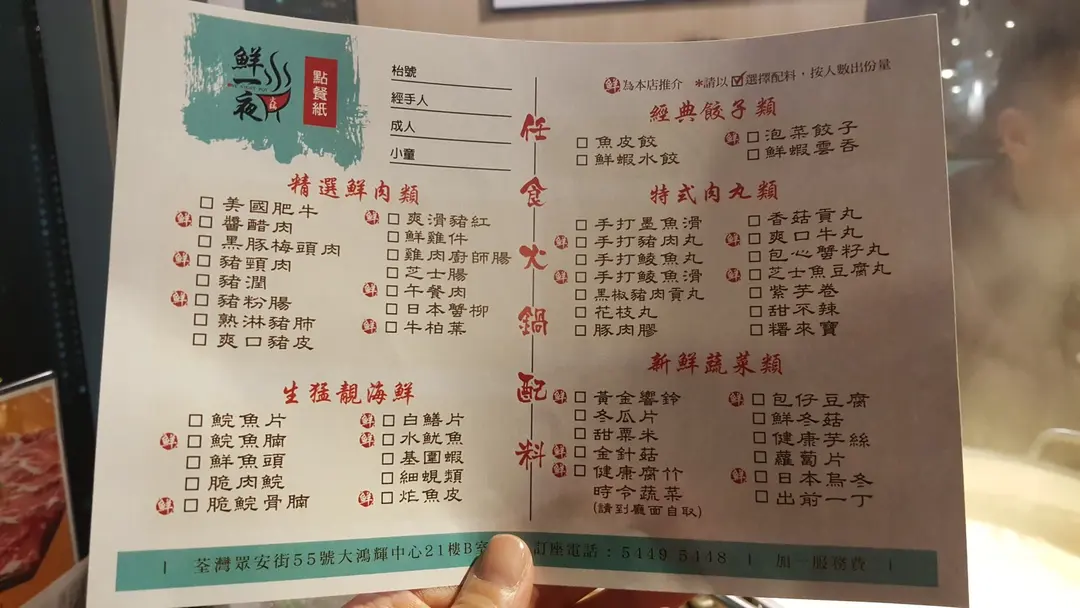 鮮一夜
點餐紙
枱號
經手人
成人
小童
任食火鍋配料
鮮為本店推介 *請以☑選擇配料，按人數出份量
精選鮮肉類
□ 美國肥牛
鮮 □ 醬醋肉
□ 黑豚梅頭肉
鮮 □ 豬頸肉
□ 豬潤
鮮 □ 豬粉腸
□ 熟淋豬肺
□ 爽口豬皮
鮮 □ 爽滑豬紅
□ 鮮雞件
□ 雞肉廚師腸
□ 芝士腸
鮮 □ 午餐肉
□ 日本蟹柳
鮮 □ 牛柏葉
生猛靚海鮮
□ 鯇魚片
鮮 □ 鯇魚腩
□ 鮮魚頭
□ 脆肉鯇
鮮 □ 脆鯇骨腩
鮮 □ 白鱔片
鮮 □ 水魷魚
□ 基圍蝦
□ 細蜆類
鮮 □ 炸魚皮
經典餃子類
□ 魚皮餃
□ 鮮蝦水餃
鮮 □ 泡菜餃子
□ 鮮蝦雲吞
特式肉丸類
□ 手打墨魚滑
鮮 □ 手打豬肉丸
□ 手打鯪魚丸
鮮 □ 手打鯪魚滑
□ 黑椒豬肉貢丸
□ 花枝丸
□ 豚肉膠
□ 香菇貢丸
鮮 □ 爽口牛丸
□ 包心蟹籽丸
鮮 □ 芝士魚豆腐丸
□ 紫芋卷
□ 甜不辣
□ 糬來寶
新鮮蔬菜類
鮮 □ 黃金響鈴
□ 冬瓜片
□ 甜粟米
鮮 □ 金針菇
鮮 □ 健康腐竹
時令蔬菜
(請到廳面自取)
鮮 □ 包仔豆腐
□ 鮮冬菇
□ 健康芋絲
□ 蘿蔔片
鮮 □ 日本烏冬
□ 出前一丁
| 荃灣眾安街55號大鴻輝中心21樓B室 訂座電話：5449 5448 | 加一服務費 |